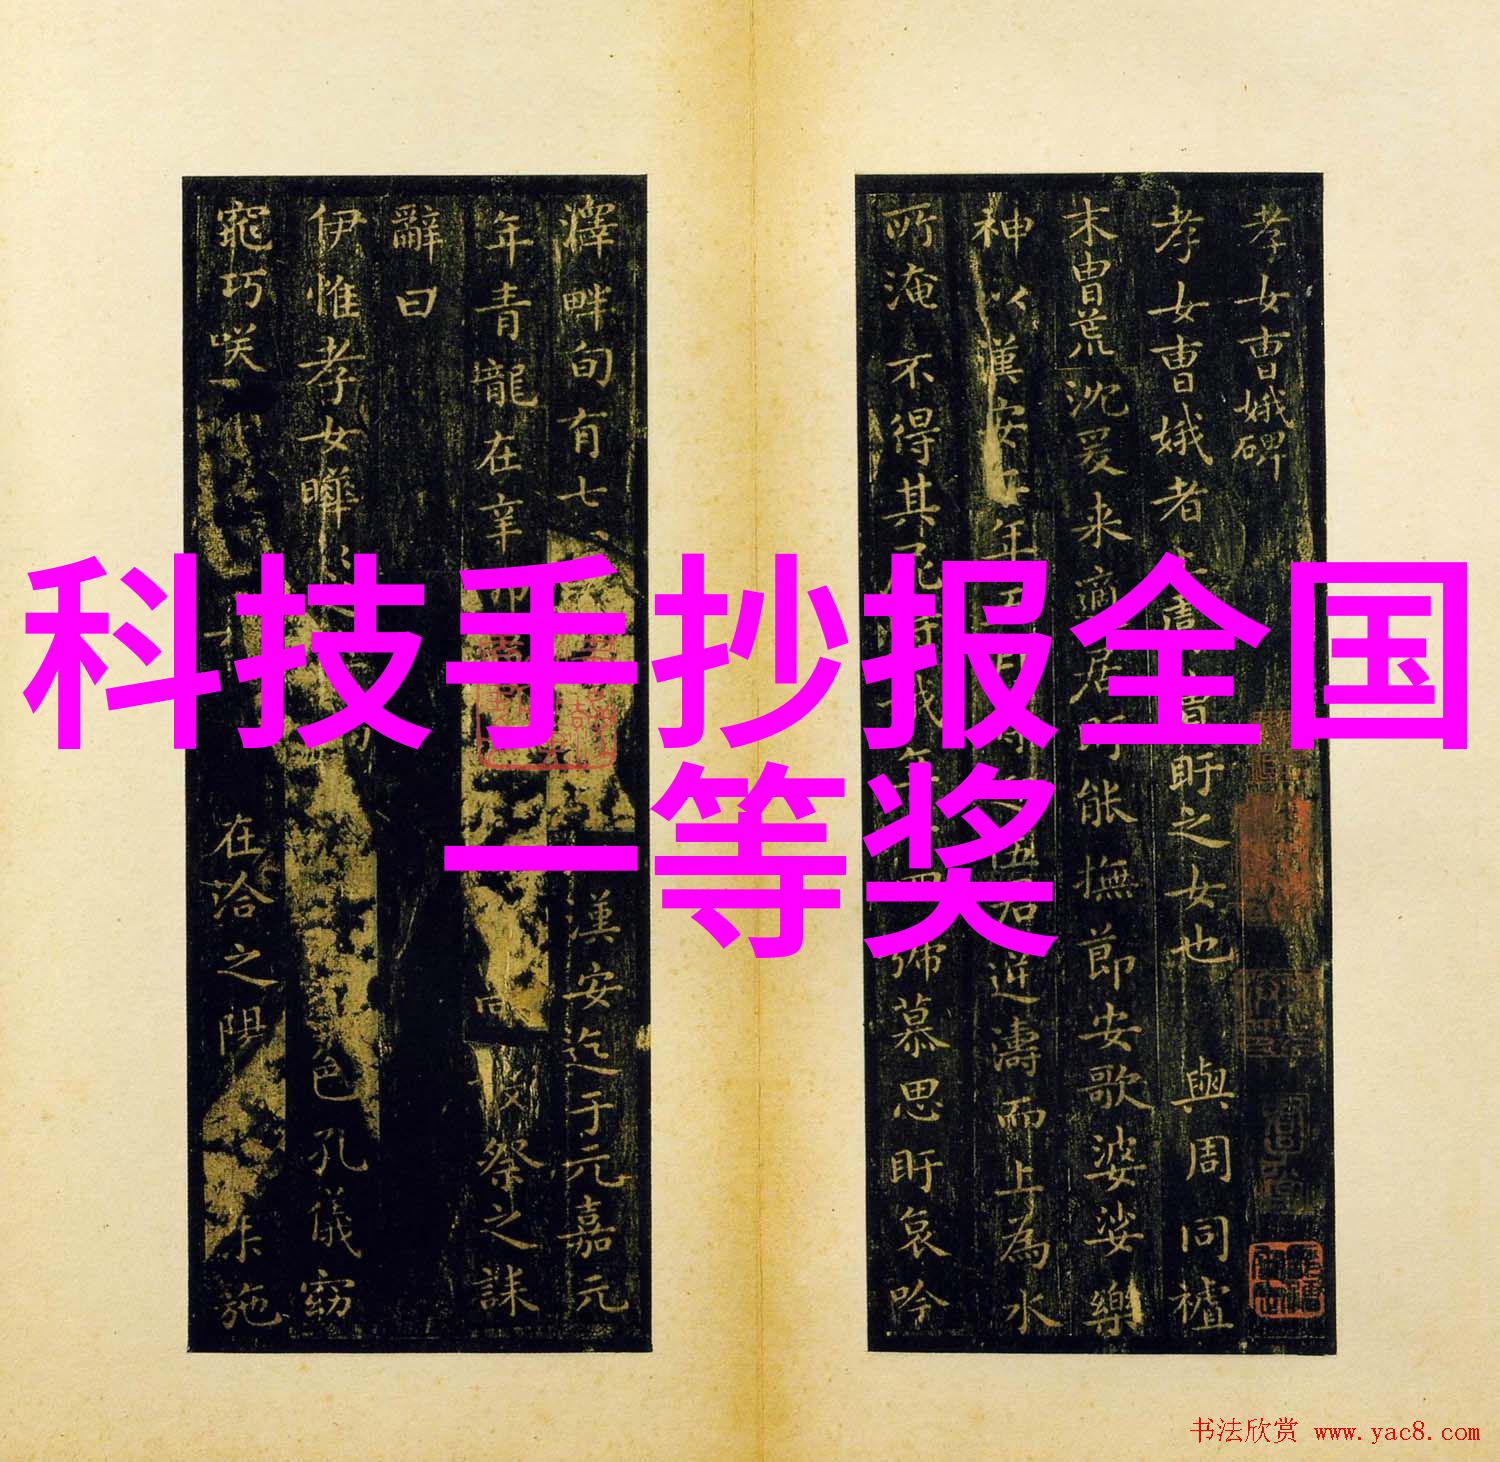 科技手抄报全国
一等奖
孝女曹娥碑
孝女曹娥者 盱之女也 與周同禇
末胄荒沈爰来適居 能撫節安歌婆娑樂
神以漢安 年 迎濤而上為水
所淹不得其 號慕思盱哀吟
澤畔旬有七 漢安迄于元嘉元
年青龍在辛 祭之誄
辭曰
伊惟孝女曄 色孔儀窈
窕巧咲 在洽之陽 施
书法欣赏 www.yac8.com